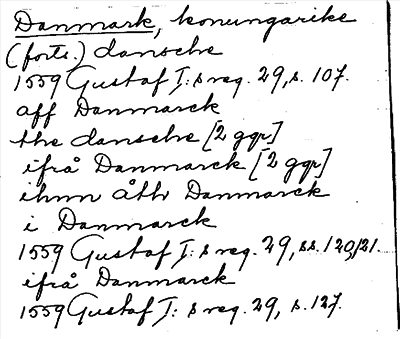 Danmark, konungarike
(forts.) dansche
1559 Gustaf I: s reg. 29, s. 107.
aff Danmarck
the dansche [2 ggr]
ifrå Danmarck [2 ggr]
ihnn åth Danmarck
i Danmarck
1559 Gustaf I: s reg. 29, ss. 120, 121.
ifrå Danmarck
1559 Gustaf I: s reg. 29, s. 127.